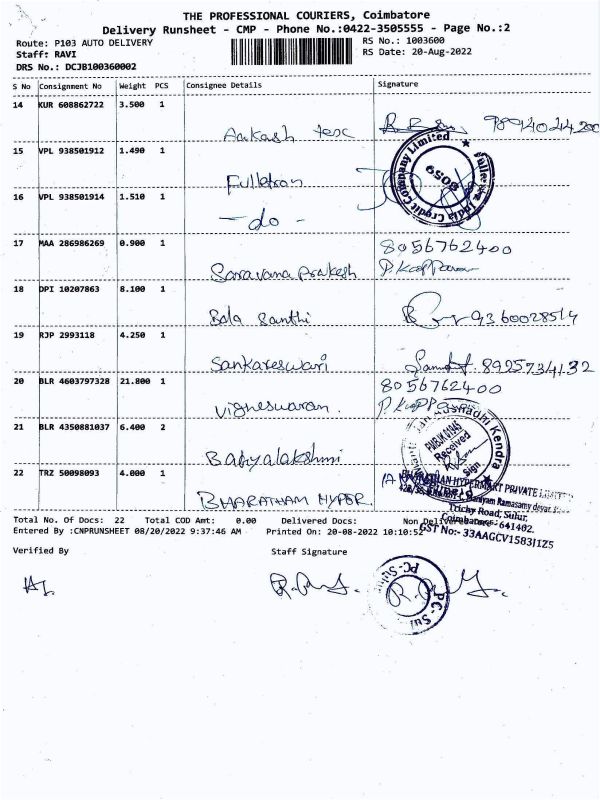 THE PROFESSIONAL COURIERS, Coimbatore
Delivery Runsheet - CMP - Phone No.:0422-3505555 - Page No.:2
Route: P103 AUTO DELIVERY
RS No.: 1003600
Staff: RAVI
RS Date: 20-Aug-2022
DRS No.: DCJB100360002
S No Consignment No Weight PCS Consignee Details Signature
14 KUR 608862722 3.500 1
Aakash tex
15 VPL 938501912 1.490 1
Fulletron
16 VPL 938501914 1.510 1
- do -
Fullerton India Credit Company Limited
6059
17 MAA 286986269 0.900 1
Saravana prakesh 8056762400
18 DPI 10207863 8.100 1
Bala Santhi 9360028514
19 RJP 2993118 4.250 1
Sankareswari 8925734132
20 BLR 4603797328 21.800 1
Vigneswaran. 8056762400
21 BLR 4350881037 6.400 2
Babyalakshmi
Kendra
Received
Sign
22 TRZ 50098093 4.000 1
BHARATHAM HYPER
HYPERMART PRIVATE LIMITED
Ramasamy devar
Trichy Road, Sulur,
Coimbatore- 641402.
GST No:- 33AAGCV1583J1Z5
Total No. Of Docs: 22 Total COD Amt: 0.00 Delivered Docs: Non Delivered
Entered By :CNPRUNSHEET 08/20/2022 9:37:46 AM Printed On: 20-08-2022 10:10:52
Verified By Staff Signature
PC-Sul
PC-Sul